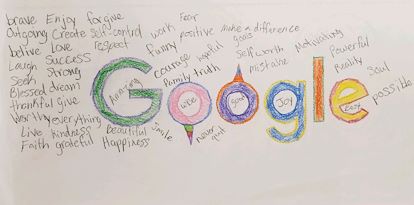 brave Enjoy forgive
Outgoing Create Self control
belive Love respect
Laugh Success
Seek Strong
Blessed dream
thankful give
Worthy everything
Live kindness Beautiful Smile
Faith grateful Happiness
work Fear
funny positive make a difference
goals
courage helpful Self worth Motivating
Family truth mistake Powerful
Reality
Soul
possible
never quit
Google
Amazing
wise
Good
Joy